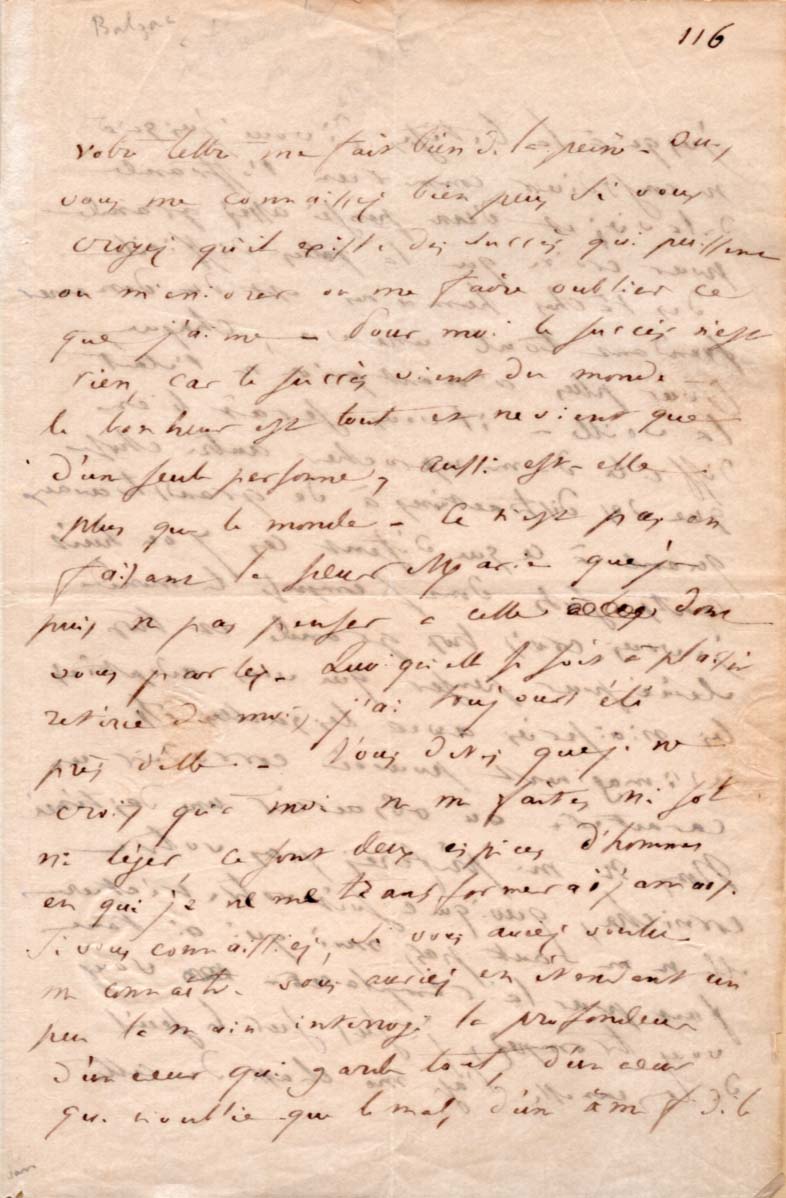 Balzac
116
Votre lettre me fait bien de la peine - Oui,
vous me connaissez bien peu si vous
croyez qu'il existe des succès qui puissent
ou m'enivrer ou me faire oublier ce
que j'aime - Pour moi le succès n'est
rien, car le succès vient du monde -
le bonheur est tout et ne vient que
d'un seule personne, aussi est-elle
plus que le monde - Ce n'est pas en
faisant la soeur Marie que je
puis ne pas penser à celle dont
vous parlez - Quoiqu'elle se soit à plaisir
retirée de moi, j'ai toujours été
près d'elle - Vous dites que je ne
crois qu'à moi ne me faites ni sot
ni léger, ce sont deux espèces d'hommes
en qui je ne me transformerai jamais.
Si vous connaissiez, si vous aviez voulu
me connaître vous auriez en étendant un
peu la main interrogé la profondeur
d'un coeur qui garde tout, d'un coeur
qui n'oublie que le mal, d'un âme